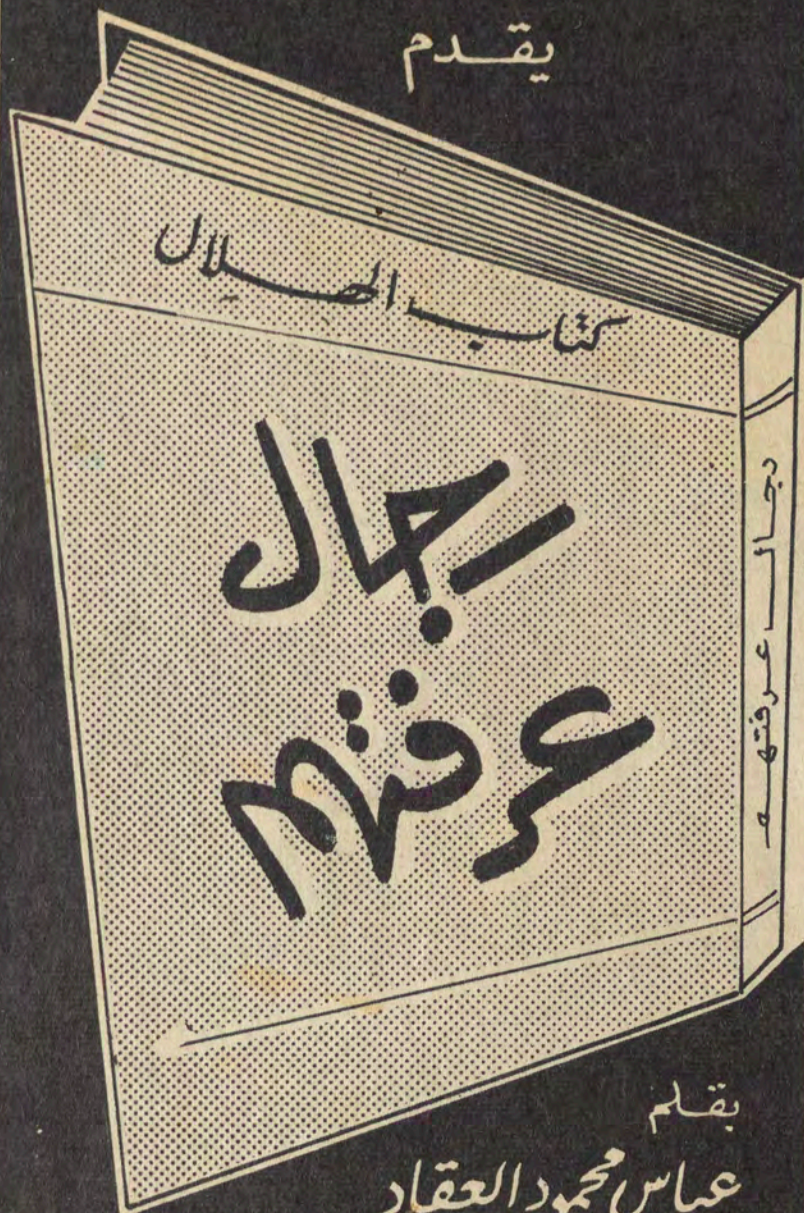 يقدم
كتاب الهلال
رجال
عرفتهم
رجال عرفتهم
بقلم
عباس محمود العقاد